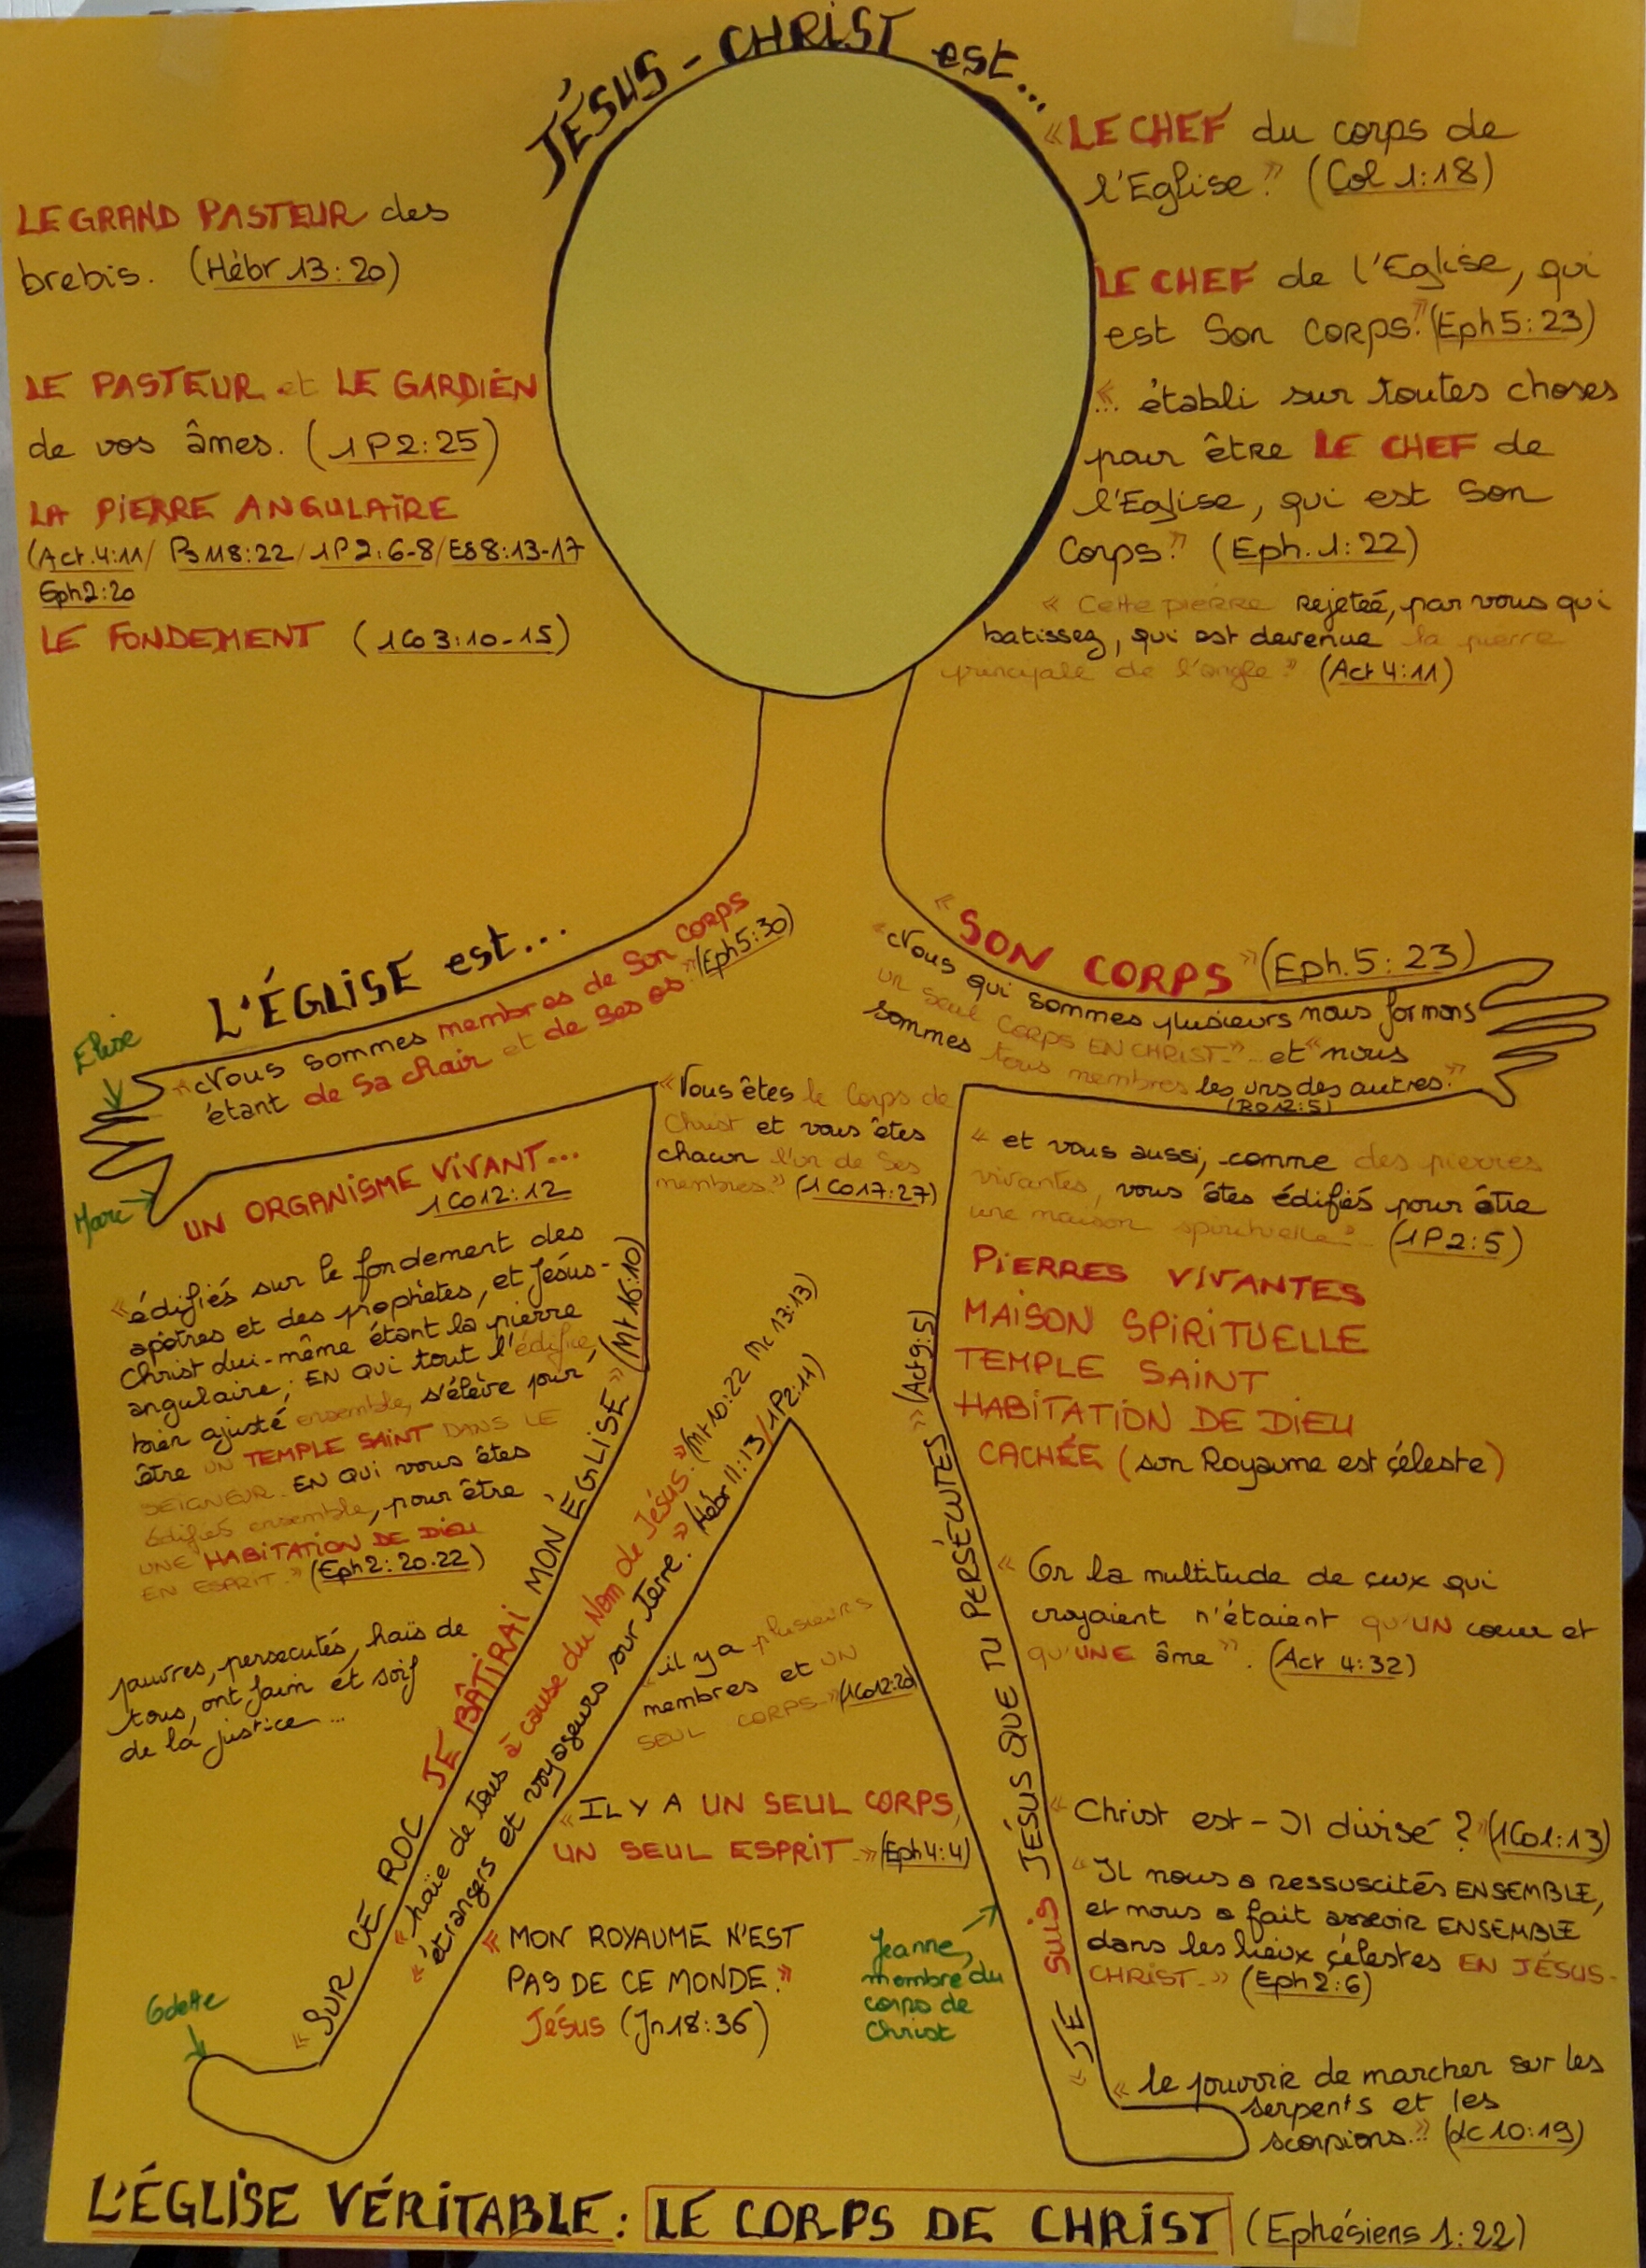 JÉSUS-CHRIST est...
LE GRAND PASTEUR des
brebis. (Hébr 13:20)
LE PASTEUR et LE GARDIEN
de vos âmes. (1P2:25)
LA PIERRE ANGULAIRE
(Act.4:11/ Ps 118:22/1P2:6-8/Es8:13-17
Eph2:20
LE FONDEMENT (1Co3:10-15)
«LE CHEF du corps de
l'Eglise." (Col 1:18)
LE CHEF de l'Eglise, qui
est Son Corps." (Eph5:23)
«... établi sur toutes choses
pour être LE CHEF de
l'Eglise, qui est Son
Corps." (Eph.1:22)
« Cette pierre Rejeteé, par vous qui
batissez, qui est devenue la pierre
principale de l'angle." (Act 4:11)
L'ÉGLISE est...
"Nous sommes membres de Son Corps
étant de Sa chair et de Ses os." (Eph5:30)
Elise
Marc
« SON CORPS » (Eph.5:23)
"Nous qui sommes plusieurs nous formons
un seul CORPS EN CHRIST"... et "nous
sommes tous membres les uns des autres."
(Ro12:5)
«Vous êtes le Corps de
Christ et vous êtes
chacun l'un de Ses
membres." (1Co17:27)
UN ORGANISME VIVANT...
1Co12:12
«édifiés sur le fondement des
apôtres et des prophètes, et Jésus-
Christ Lui-même étant la pierre
angulaire; EN QUI tout l'édifice,
bien ajusté ensemble, s'élève pour
être UN TEMPLE SAINT DANS LE
SEIGNEUR. EN QUI vous êtes
édifiés ensemble, pour être
UNE HABITATION DE DIEU
EN ESPRIT." (Eph2:20.22)
pauvres, persecutés, haïs de
tous, ont faim et soif
de la justice...
« et vous aussi, comme des pierres
vivantes, vous êtes édifiés pour être
une maison spirituelle" (1P2:5)
PIERRES VIVANTES
MAISON SPIRITUELLE
TEMPLE SAINT
HABITATION DE DIEU
CACHÉE (son Royaume est céleste)
« SUR CE ROC JE BÂTIRAI MON ÉGLISE» (Mt 16:10)
« haïe de Tous à cause du Nom de Jésus." (Mt 10:22 Mc 13:13)
« étrangers et voyageurs sur Terre." Hébr 11:13/1P2:11)
« JE SUIS JÉSUS QUE TU PERSÉCUTES» (Act9:5)
«il y a plusieurs
membres et UN
SEUL CORPS" (1Co12:20)
« IL Y A UN SEUL CORPS,
UN SEUL ESPRIT » (Eph4:4)
« MON ROYAUME N'EST
PAS DE CE MONDE."
Jésus (Jn18:36)
« Or la multitude de ceux qui
croyaient n'étaient qu'UN coeur et
qu'UNE âme". (Act 4:32)
« Christ est-Il divisé ?" (1Co1:13)
"IL nous a ressuscités ENSEMBLE,
et nous a fait asseoir ENSEMBLE
dans les lieux célestes EN JÉSUS-
CHRIST." (Eph2:6)
Jeanne,
membre du
corps de
Christ
Odette
« le pouvoir de marcher sur les
serpents et les
scorpions..." (Lc10:19)
L'ÉGLISE VÉRITABLE: LE CORPS DE CHRIST (Ephésiens 1:22)